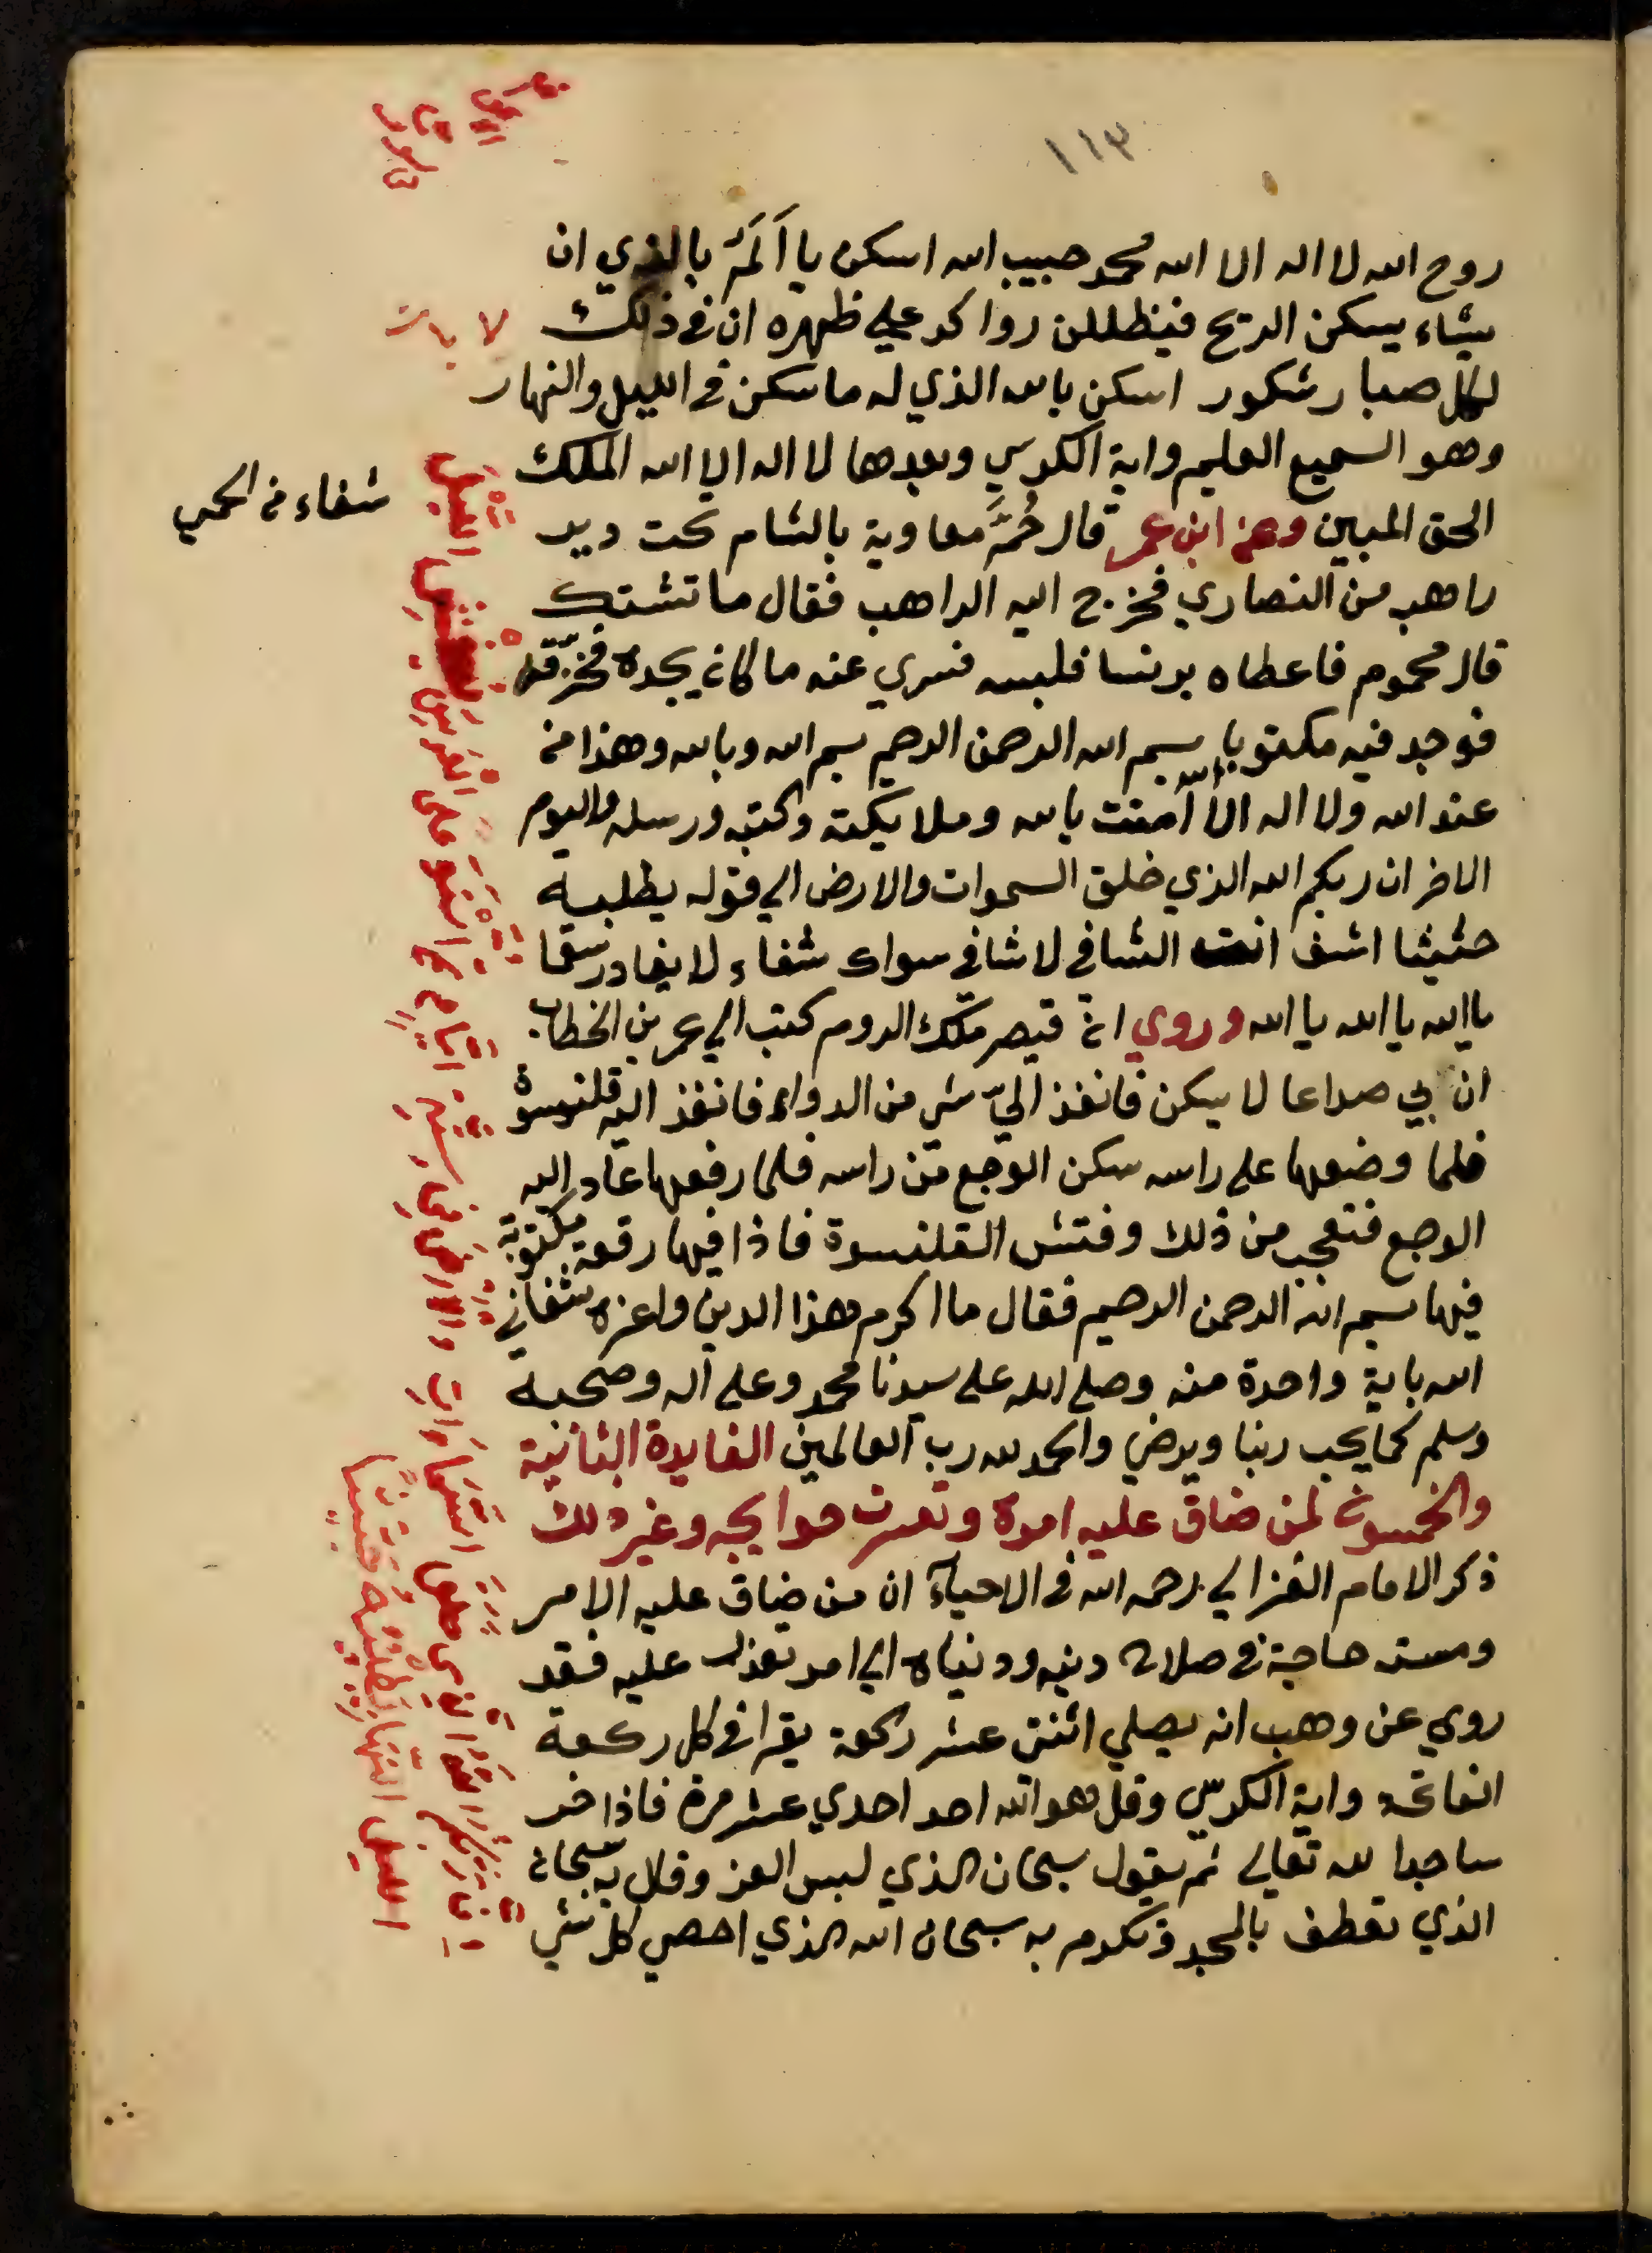 ١١٣
روح الله لا اله الا الله محمد حبيب الله اسكن يا اَلَمُ بالذي ان
يشاء يسكن الريح فيظللن رواكد علي ظهره ان في ذلك
لكل صبار شكور اسكن بالله الذي له ما سكن في الليل والنهار
وهو السميع العليم واية الكرسي وبعدها لا اله الا الله الملك
الحق المبين وعن ابن عمر قال حُمَّ معاوية بالشام تحت دير
راهب من النصاري فخرج اليه الراهب فقال ما تشتك
قال محموم فاعطاه برنسا فلبسه فسري عنه ما كان يجده فخرّقه
فوجد فيه مكتوبا بسم الله الرحمن الرحيم بسم الله وبالله وهذا من
عند الله ولا اله الا الله آمنت بالله وملايكته وكتبه ورسله واليوم
الاخر ان ربكم الله الذي خلق السموات والارض الي قوله يطلبه
حثيثا اشف انت الشافي لا شافي سواك شفاء لا يغادر سقما
يا الله يا الله يا الله وروي ان قيصر ملك الروم كتب الي عمر بن الخطاب
ان بي صداعا لا يسكن فانفذ اليّ شي من الدواء فانفذ اليه قلنسوة
فلما وضعها علي راسه سكن الوجع من راسه فلما رفعها عاد اليه
الوجع فتعجب من ذلك وفتش القلنسوة فاذا فيها رقعة مكتوبة
فيها بسم الله الرحمن الرحيم فقال ما اكرم هذا الدين واعزه شفاني
الله باية واحدة منه وصلي الله علي سيدنا محمد وعلي اله وصحبه
وسلم كما يحب ربنا ويرضي والحمد لله رب العالمين الفايدة الثانية
والخمسون لمن ضاق عليه اموره وتعسرت حوايجه وغير ذلك
ذكر الامام الغزالي رحمه الله في الاحياء ان من ضاق عليه الامر
ومسته حاجة في صلاح دينه ودنياه الي امر تعذر عليه فقد
روي عن وهب انه يصلي اثنتي عشر ركعة يقرا في كل ركعة
الفاتحه واية الكرسي وقل هو الله احد احدي عشر مرة فاذا خر
ساجدا لله تعالي ثم يقول سبحان الذي لبس العز وقال به سبحان
الذي تعطف بالمجد وتكرم به سبحان الله الذي احصي كل شي
شفاء من الحمي
اِنَّ رَبَّكُمُ اللهُ الَّذِي خَلَقَ السَّمَاوَاتِ وَالْاَرْضَ فِي سِتَّةِ اَيَّامٍ ثُمَّ اسْتَوَى عَلَى الْعَرْشِ يُغْشِي اللَّيْلَ
النَّهَارَ يَطْلُبُهُ حَثِيثًا